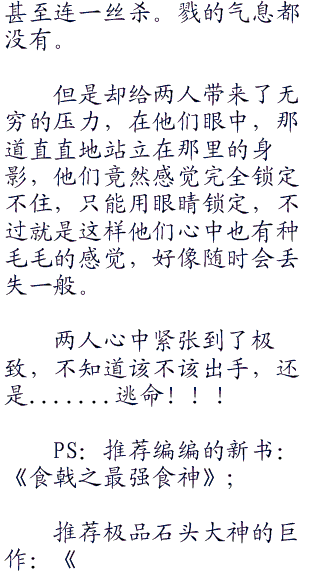 甚至连一丝杀。戮的气息都
没有。
但是却给两人带来了无
穷的压力，在他们眼中，那
道直直地站立在那里的身
影，他们竟然感觉完全锁定
不住，只能用眼睛锁定，不
过就是这样他们心中也有种
毛毛的感觉，好像随时会丢
失一般。
两人心中紧张到了极
致，不知道该不该出手，还
是.......逃命！！！
PS：推荐编编的新书：
《食戟之最强食神》；
推荐极品石头大神的巨
作：《